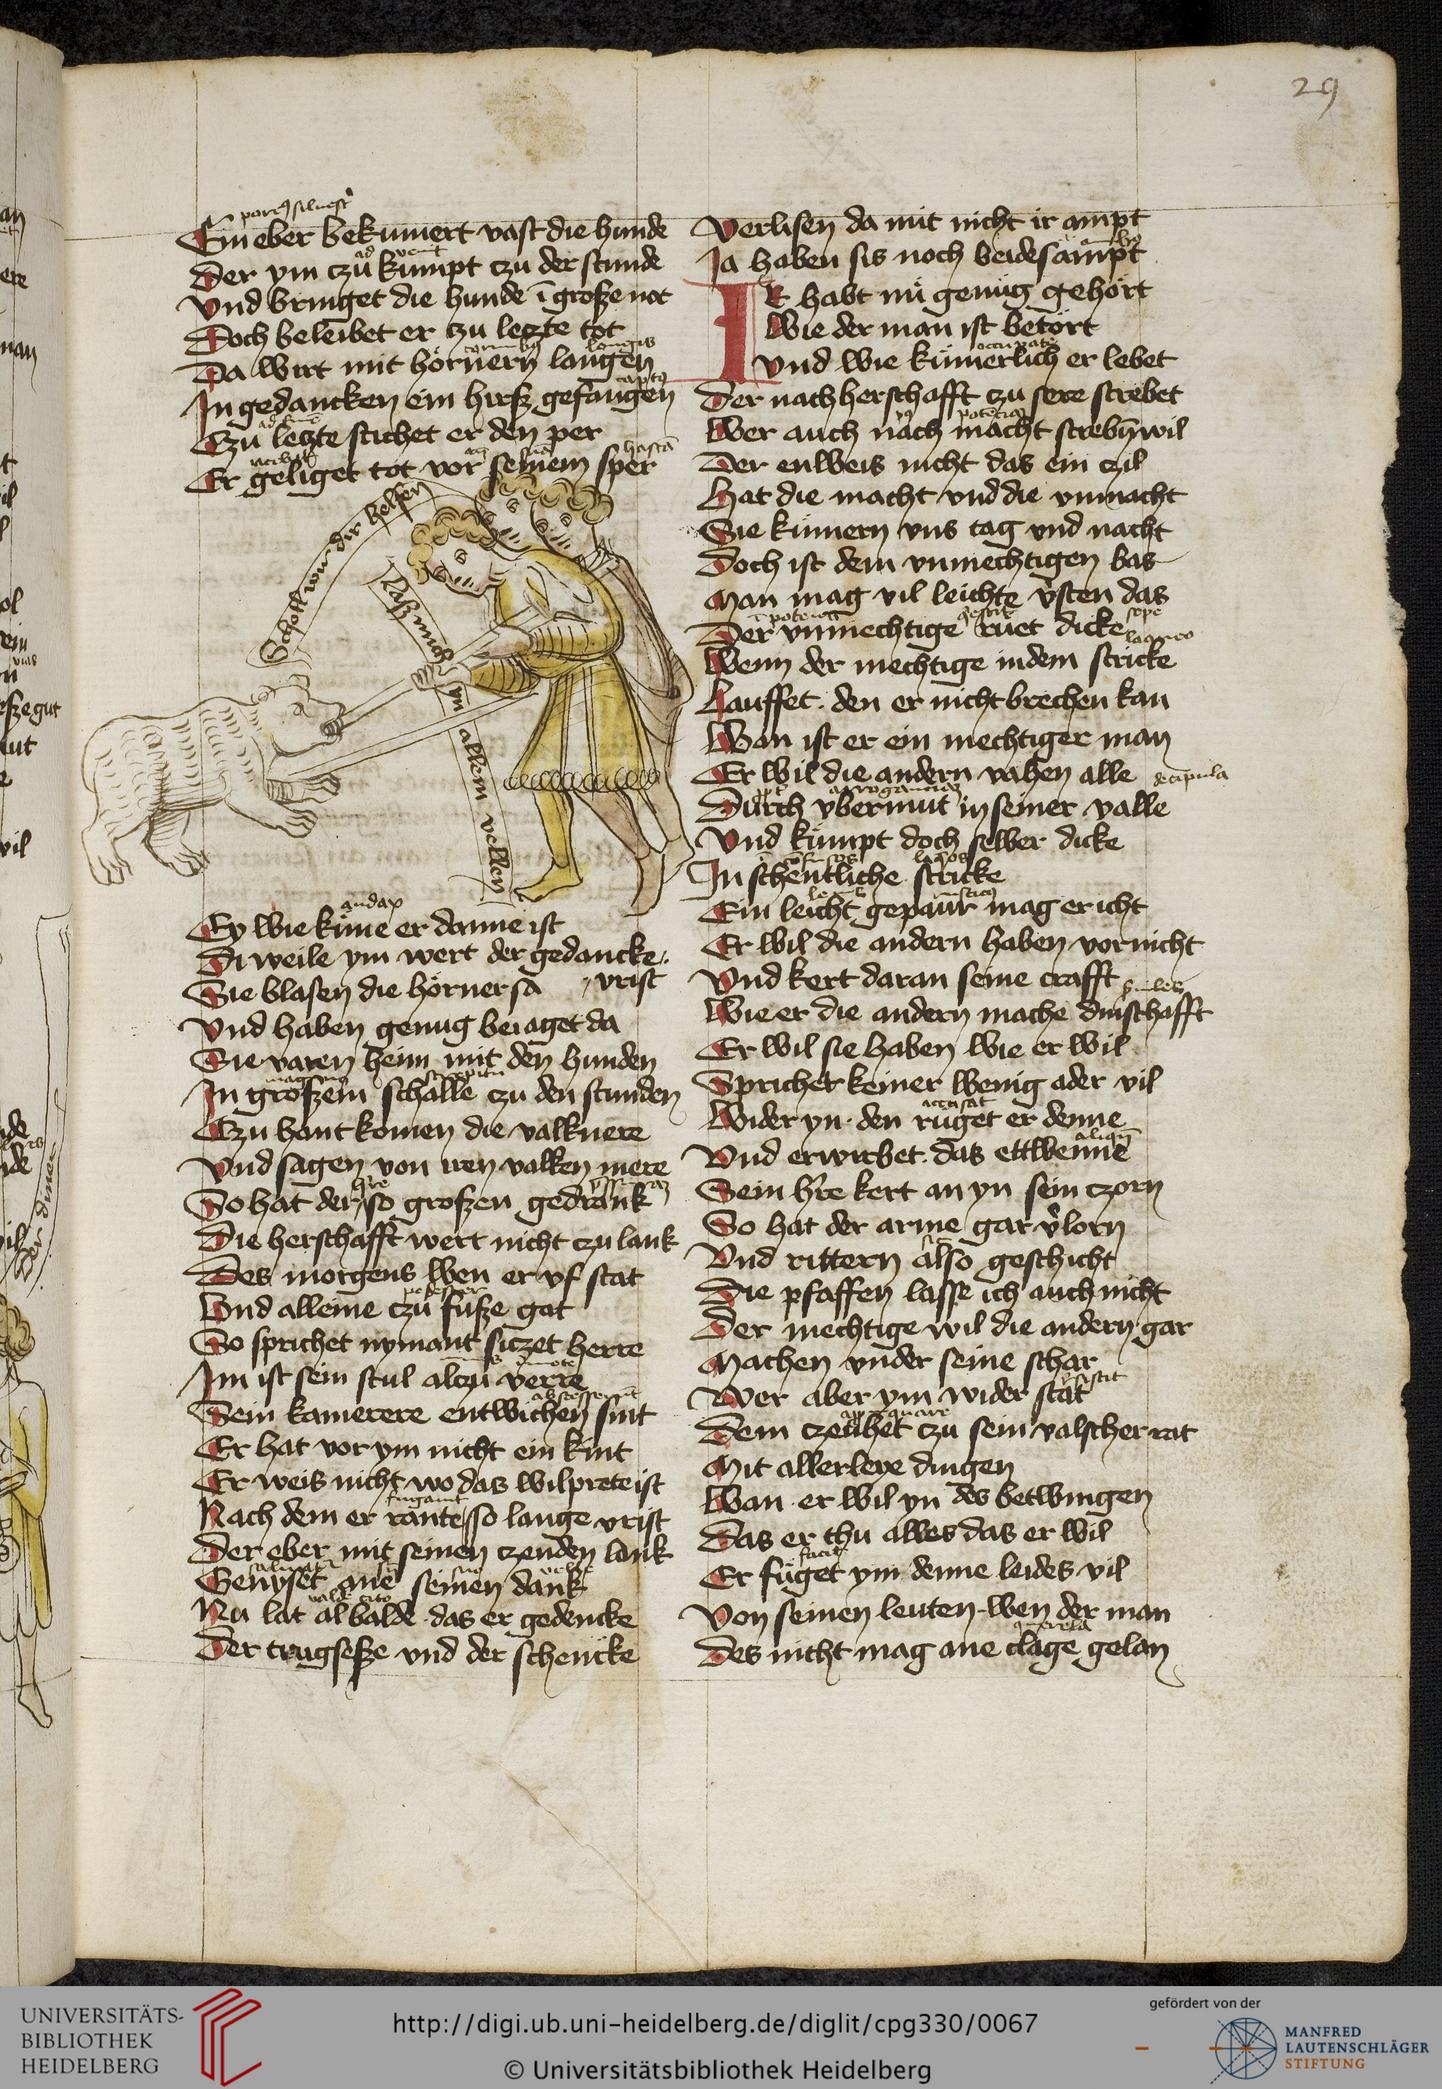 29
porcus silvestris
Ein eber bekumert vast die hunde
Der ym czu kumpt czu der stunde
Vnd bringet die hunde ī große not
Doch beleibet er czu leczte tot
Da wirt mit hörnern langen
In gedancken ein hirß gefangen
Czu leczte stichet er den per
Er geliget tot vor seinem sper
Schöll wir dir helffen
Laß mich yn allein vellen
audax
Ey wie küne er danne ist
Di weile ym wert der gedancke
vrist
Sie blasen die hörner sa
Vnd haben genug beiaget da
Sie varen heim mit den hunden
In großem schalle czu den stunden
Czu hant komen die valknere
Vnd sagen von iren valken mere
So hat der so großen gedrank
Die herschafft wert nicht czu lank
Des morgens wen er vf stat
Vnd alleine czu fuße gat
So sprichet nymant siczet herre
Im ist sein stul alczu verre
Sein kamerere entwichen sint
Er hat vor ym nicht ein kint
Er weis nicht wo das wilprete ist
Nach dem er rante so lange vrist
Der eber mit seinen czenden lank
Geniset ane seinen dank
Nu lat al balde das er gedencke
Der trugseße vnd der schencke
Verlisen da mit nicht ir ampt
Ja haben sis noch beidesampt
IR habt nü genüg gehört
Wie der man ist betört
Vnd wie kümerlich er lebet
Der nach herschafft czu sere strebet
Wer auch nach macht strebn wil
Der enweis nicht das ein czil
Hat die macht vnd die vnmacht
Sie kümern vns tag vnd nacht
Doch ist dem vnmechtigen bas
Man mag vil leichte v̓sten das
Der vnmechtige ruet dicke
Wenn der mechtige in dem stricke
Lauffet den er nicht brechen kan
Wan ist er ein mechtiger man
Er wil die andern vahen alle
decipula
Durch vbermut in seiner valle
Vnd kümpt doch selber dicke
In schentliche stricke
Ein leicht gepaur mag er icht
Er wil die andern haben vor nicht
Vnd kert daran seine crafft
Wie er die andern mache dinschafft
Er wil sie haben wie er wil
Sprichet keiner wenig ader vil
accusat
Wider yn den rüget er denne
Vnd erwirbet das ettwenne
Sein h̓re kert an yn sein czorn
So hat der arme gar v̓lorn
Vnd rittern also geschicht
Die pfaffen lasse ich auch nicht
Der mechtige wil die andern gar
Machen vnder seine schar
Wer aber ym wider stat
Dem czeuhet czu sein valscher rat
Mit allerleye dingen
Wan er wil yn des betwingen
Das er thu alles das er wil
facit
Er füget ym denne leides vil
Von seinen leuten wen der man
querela
Des nicht mag ane clage gelan
UNIVERSITÄTS-
BIBLIOTHEK
HEIDELBERG
http://digi.ub.uni-heidelberg.de/diglit/cpg330/0067
© Universitätsbibliothek Heidelberg
gefördert von der
MANFRED
LAUTENSCHLÄGER
STIFTUNG